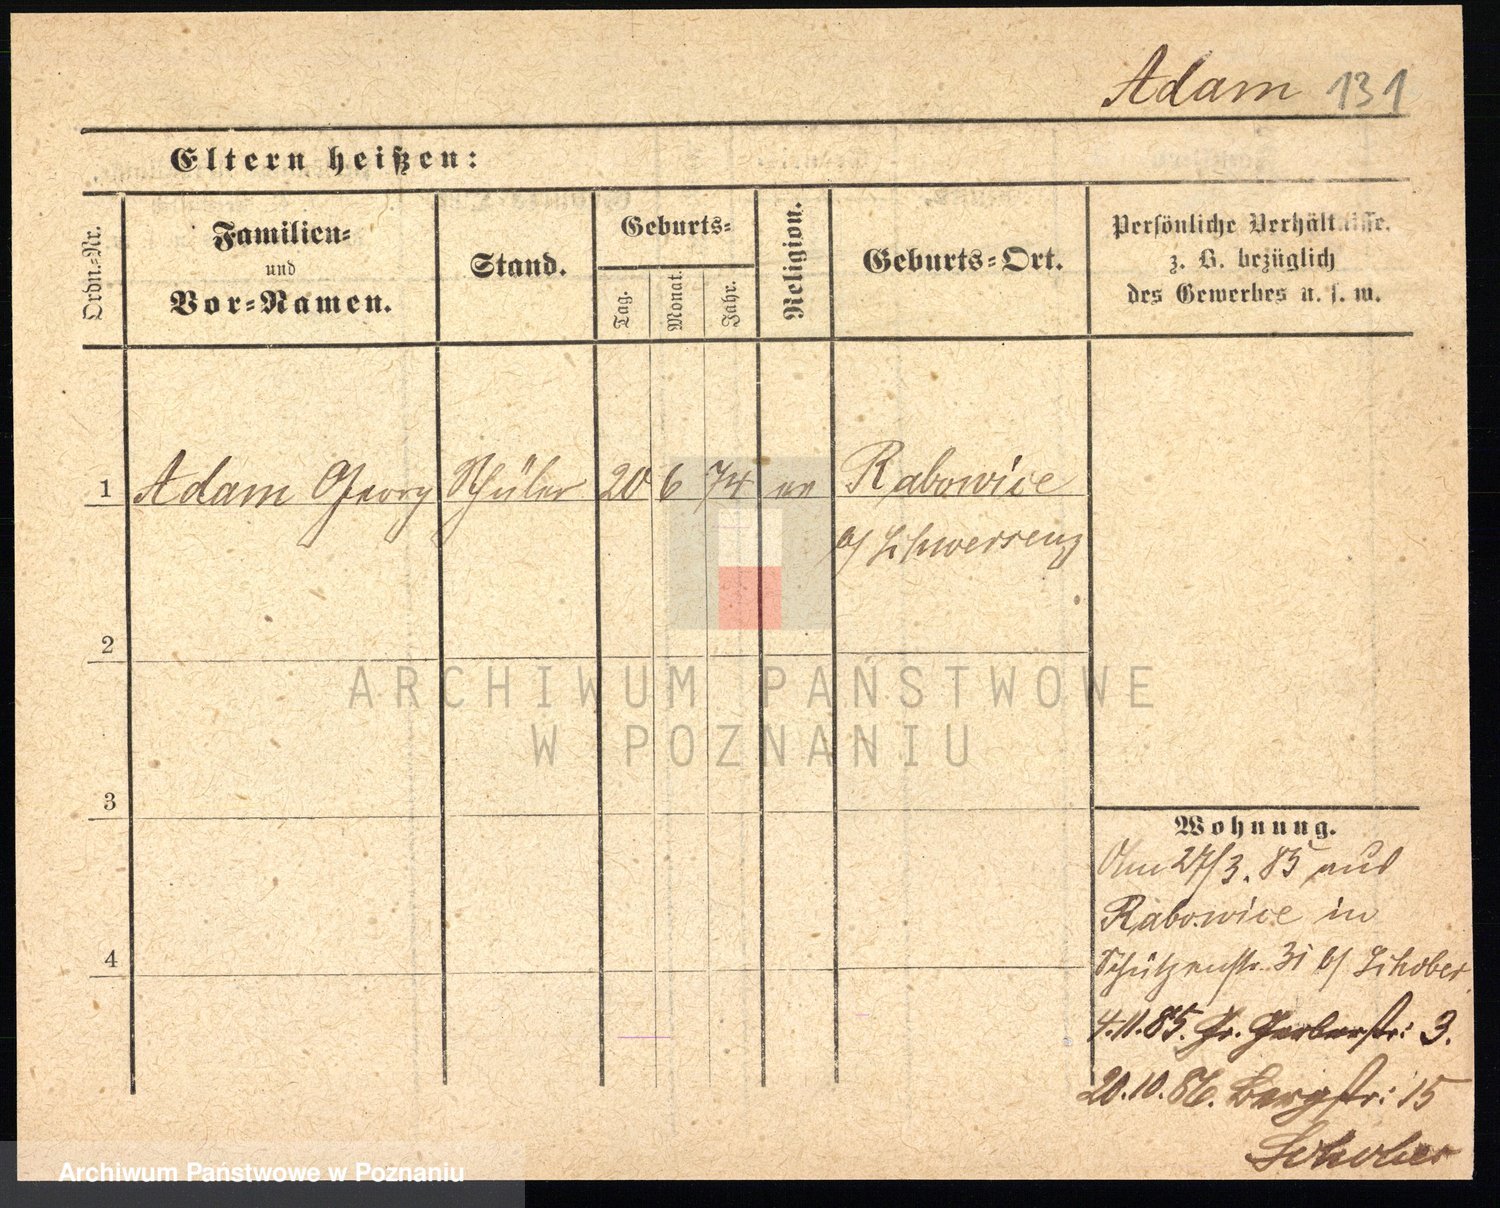 Adam 131
Eltern heißen:
Ordn.-Nr.
Familien-
und
Vor-Namen.
Stand.
Geburts-
Tag.
Monat.
Jahr.
Religion.
Geburts-Ort.
Persönliche Verhältnisse.
z. B. bezüglich
des Gewerbes u. s. w.
1 Adam Georg Schüler 20 6 74 ev Rabowice
b/ Schwersenz
2
ARCHIWUM PAŃSTWOWE
W POZNANIU
3
Wohnung.
Am 27/3. 85 aus
Rabowice in
4
Schützenstr. 31 b/ Schober
4.11.85. Gr. Gerberstr: 3.
20.10.86. Bergstr: 15
Schober
Archiwum Państwowe w Poznaniu